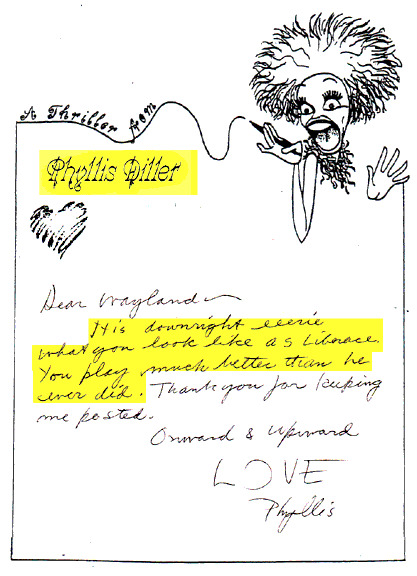 A Thriller from
Phyllis Diller
Dear Wayland—
It is downright eeerie
what you look like as Liberace.
You play much better than he
ever did. Thank you for keeping
me posted.
Onward & Upward
LOVE
Phyllis